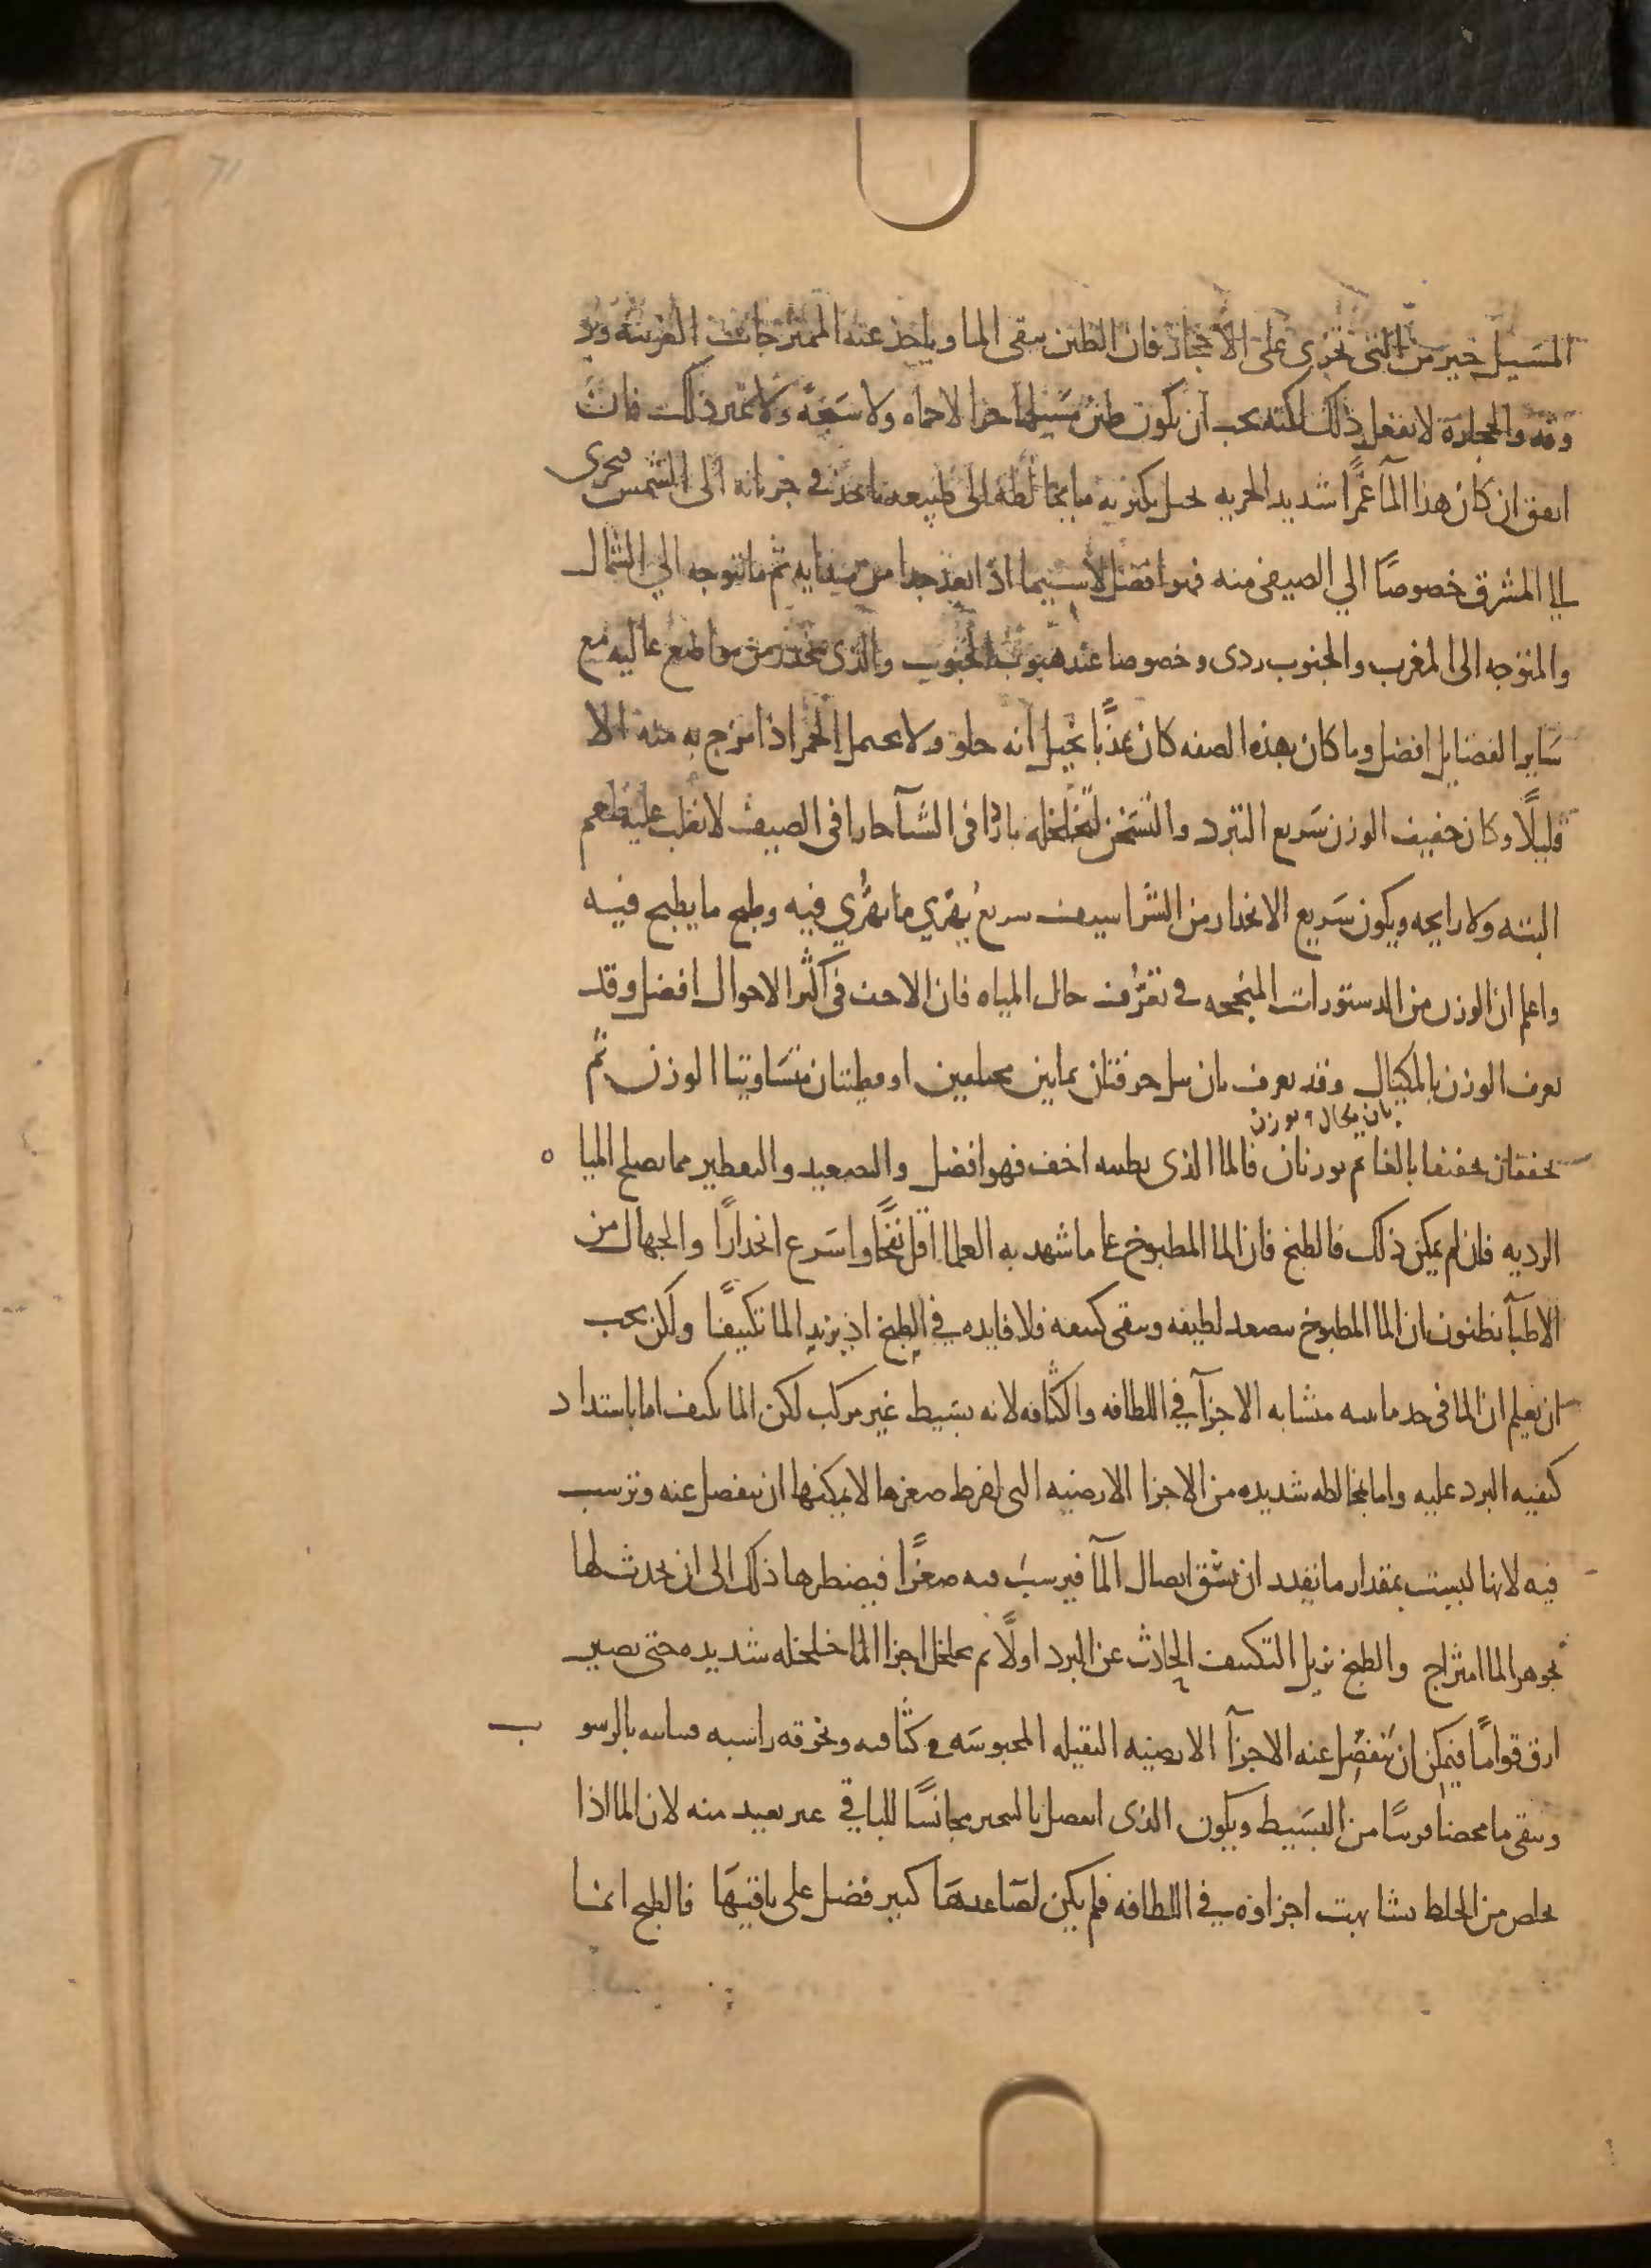 المسيل خير من التي تجري على الاحجار فان الطين ينقي الما وياخذ عنه الممتزجات الغريبة ويرو
وقه والحجارة لا تفعل ذلك لكنه يجب ان يكون طين مسيلها حرا لا حماه ولا سبخه ولا غير ذلك فان
اتفق ان كان هذا المآ غمرًا شديد الجريه يحيل بكثرته ما يخالطه الى طبيعته ياخذ في جريانه الى الشمس فيجرى
الي المشرق خصوصًا الي الصيفى منه فهو افضل لا سيما اذا بعد جدا من مبدايه ثم ما يتوجه الي الشمال
والمتوجه الى المغرب والجنوب ردى وخصوصا عند هبوب الجنوب والذى ينحدر من مواضع عاليه مع
ساير الفضايل افضل وما كان بهذه الصفه كان عذبًا يخيل انه حلو ولا يحتمل الخمر اذا مزج به منه الا
قليلًا وكان خفيف الوزن سريع التبرد والتسخن لتخلخله باردا في الشتآ حارا في الصيف لا يغلب عليه طعم
البته ولا رايحه ويكون سريع الانحدار من الشراسيف سريع تهري ما يهري فيه وطبخ ما يطبخ فيه
واعلم ان الوزن من الدستورات المنجحه في تعرف حال المياه فان الاخف في اكثر الاحوال افضل وقد
يعرف الوزن بالمكيال وقد يعرف بان تبل خرقتان بماين مختلفين او قطنتان متساويتا الوزن ثم
بان يكال ويوزن
يجففان تجفيفا بالغا ثم يوزنان فالما الذى قطنته اخف فهو افضل والتصعيد والتقطير مما يصلح الميا ه
الرديه فان لم يمكن ذلك فالطبخ فان الما المطبوخ على ما شهد به العلما اقل نفخًا واسرع انحدارًا والجهال من
الاطبآ يظنون ان الما المطبوخ يتصعد لطيفه ويبقى كثيفه فلا فايده في الطبخ اذ يزيد الما تكثيفًا ولكن يجب
ان تعلم ان الما في حد مائيته متشابه الاجزآ في اللطافه والكثافه لانه بسيط غير مركب لكن الما يكثف اما باشتداد
كيفيه البرد عليه واما بمخالطه شديده من الاجزا الارضيه التى لفرط صغرها لا يمكنها ان تنفصل عنه وترسب
فيه لانها ليست بمقدار ما تقدر ان تشق اتصال المآ فيرسب فيه صغرًا فيضطرها ذلك الى ان يحدث لها
بجوهر الما امتزاج والطبخ يزيل التكثيف الحادث عن البرد اولًا ثم يخلخل اجزا الما خلخله شديده حتى يصير
ارق قوامًا فيمكن ان تنفصل عنه الاجزآ الارضيه الثقيله المحبوسه في كثافته وتخرقه راسبه مباينه بالرسو ب
ويبقى ما محضا قريبًا من البسيط ويكون الذى انفصل بالتبخير مجانسًا للباقي غير بعيد منه لان الما اذا
يخلص من الخلط تشابهت اجزاوه في اللطافه فلم يكن لصاعدها كبير فضل على باقيها فالطبخ انما